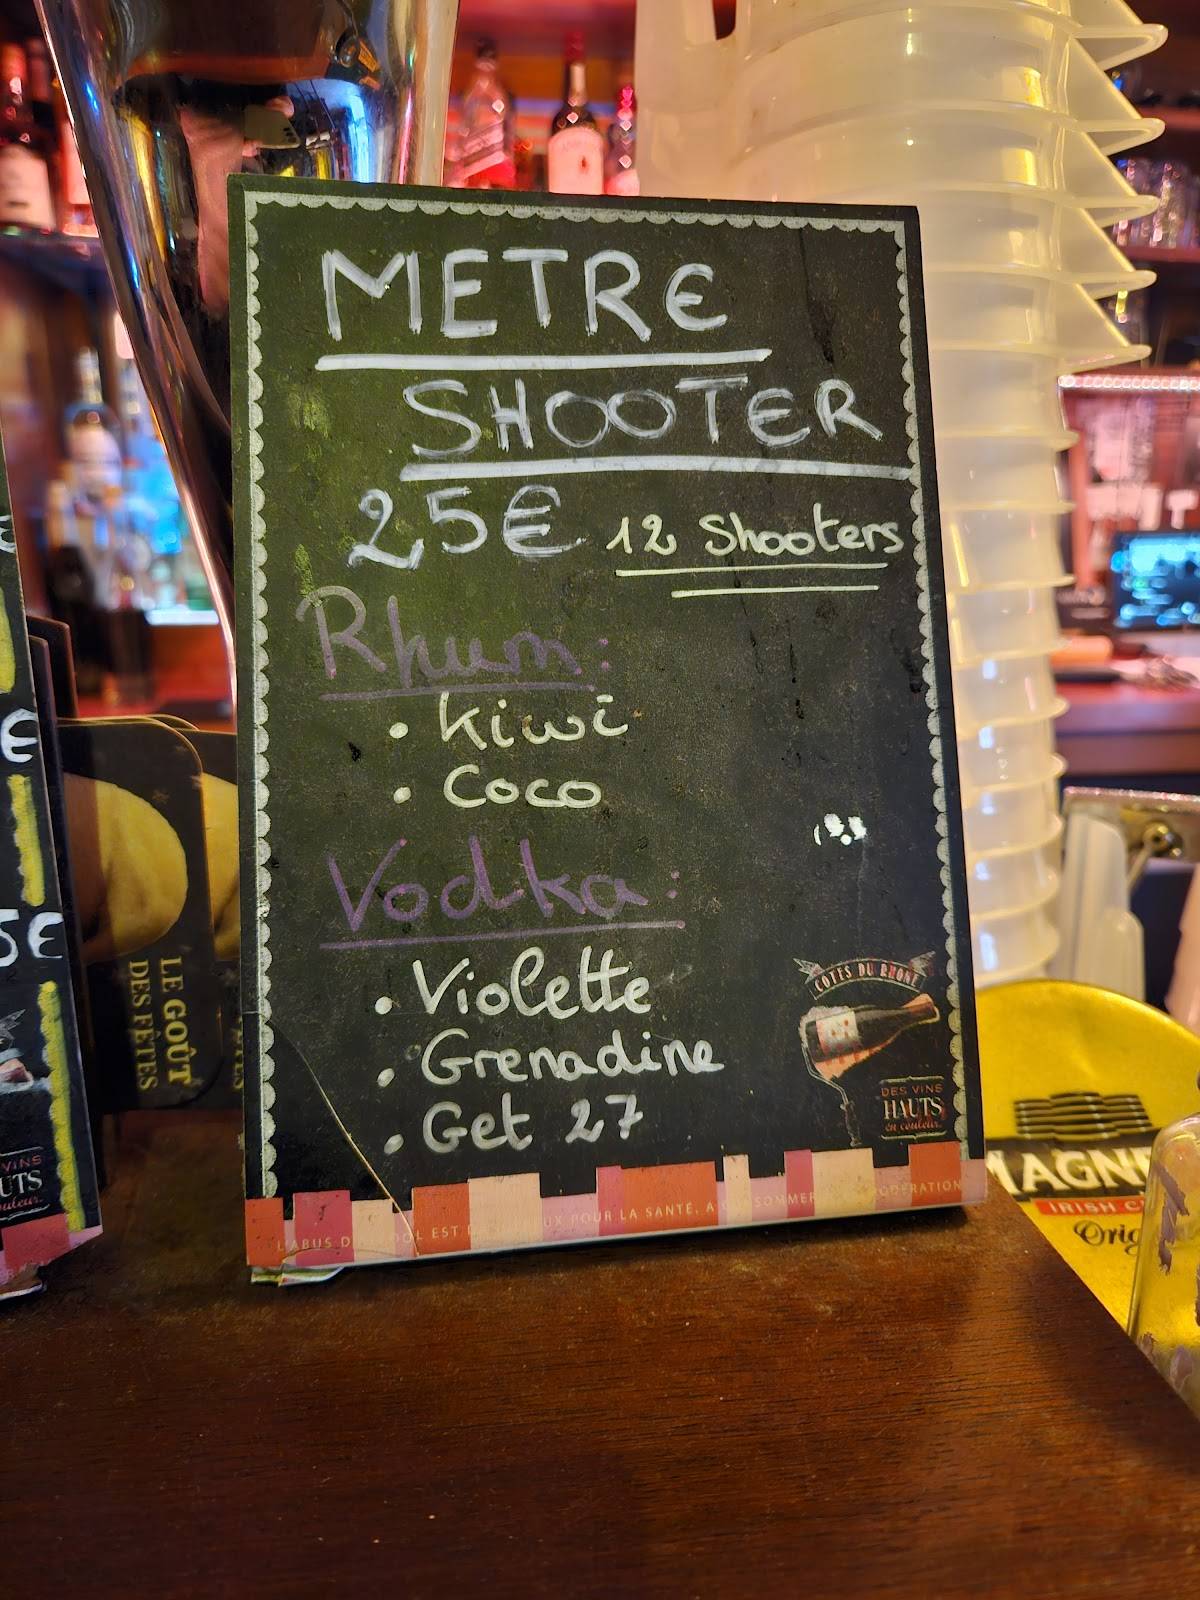 METRE
SHOOTER
25€ 12 Shooters
Rhum:
• Kiwi
• Coco
Vodka:
• Violette
• Grenadine
• Get 27
CÔTES DU RHÔNE
DES VINS
HAUTS
en couleur.
L'ABUS D'ALCOOL EST DANGEREUX POUR LA SANTÉ, À CONSOMMER AVEC MODÉRATION
LE GOÛT
DES FÊTES
€
5€
VINS
UTS
MAGNE
IRISH C
Orig